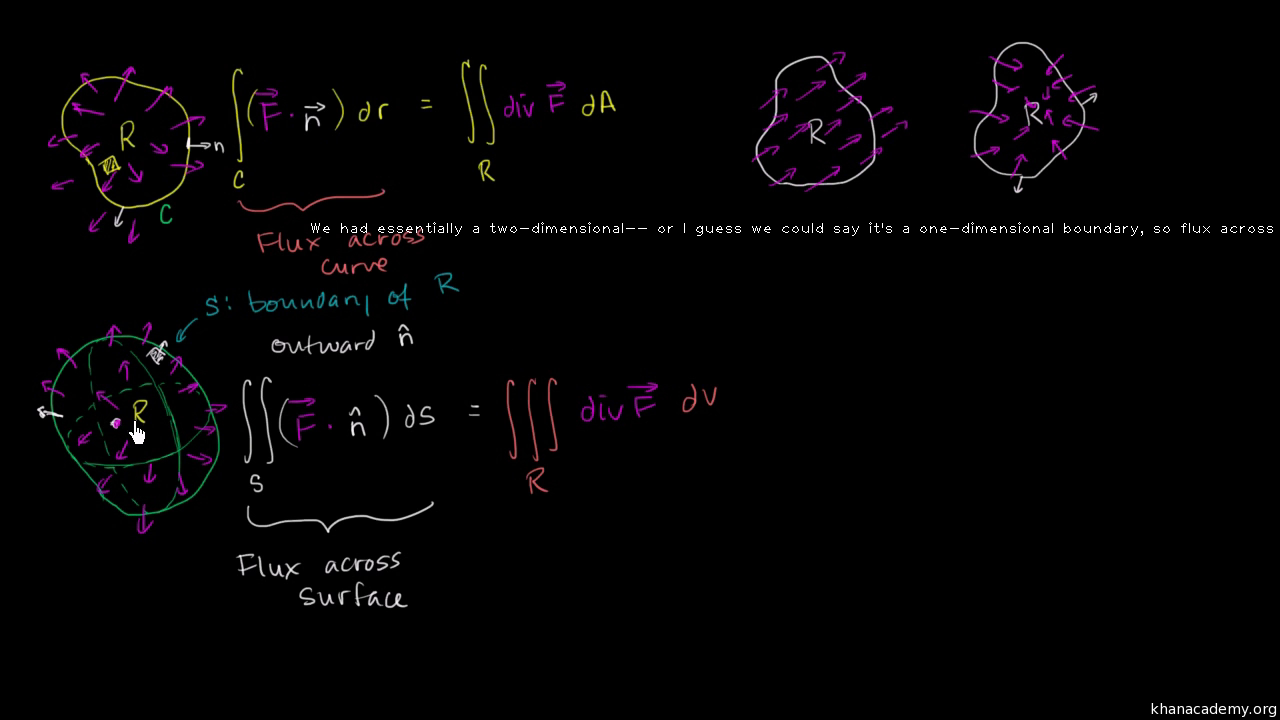 R
n
C
∫_C (F⃗ · n⃗) dr = ∬_R div F⃗ dA
R
R
We had essentially a two-dimensional-- or I guess we could say it's a one-dimensional boundary, so flux across
Flux across
curve
S: boundary of R
outward n̂
R
∬_S (F⃗ · n̂) dS = ∭_R div F⃗ dV
Flux across
surface
khanacademy.org